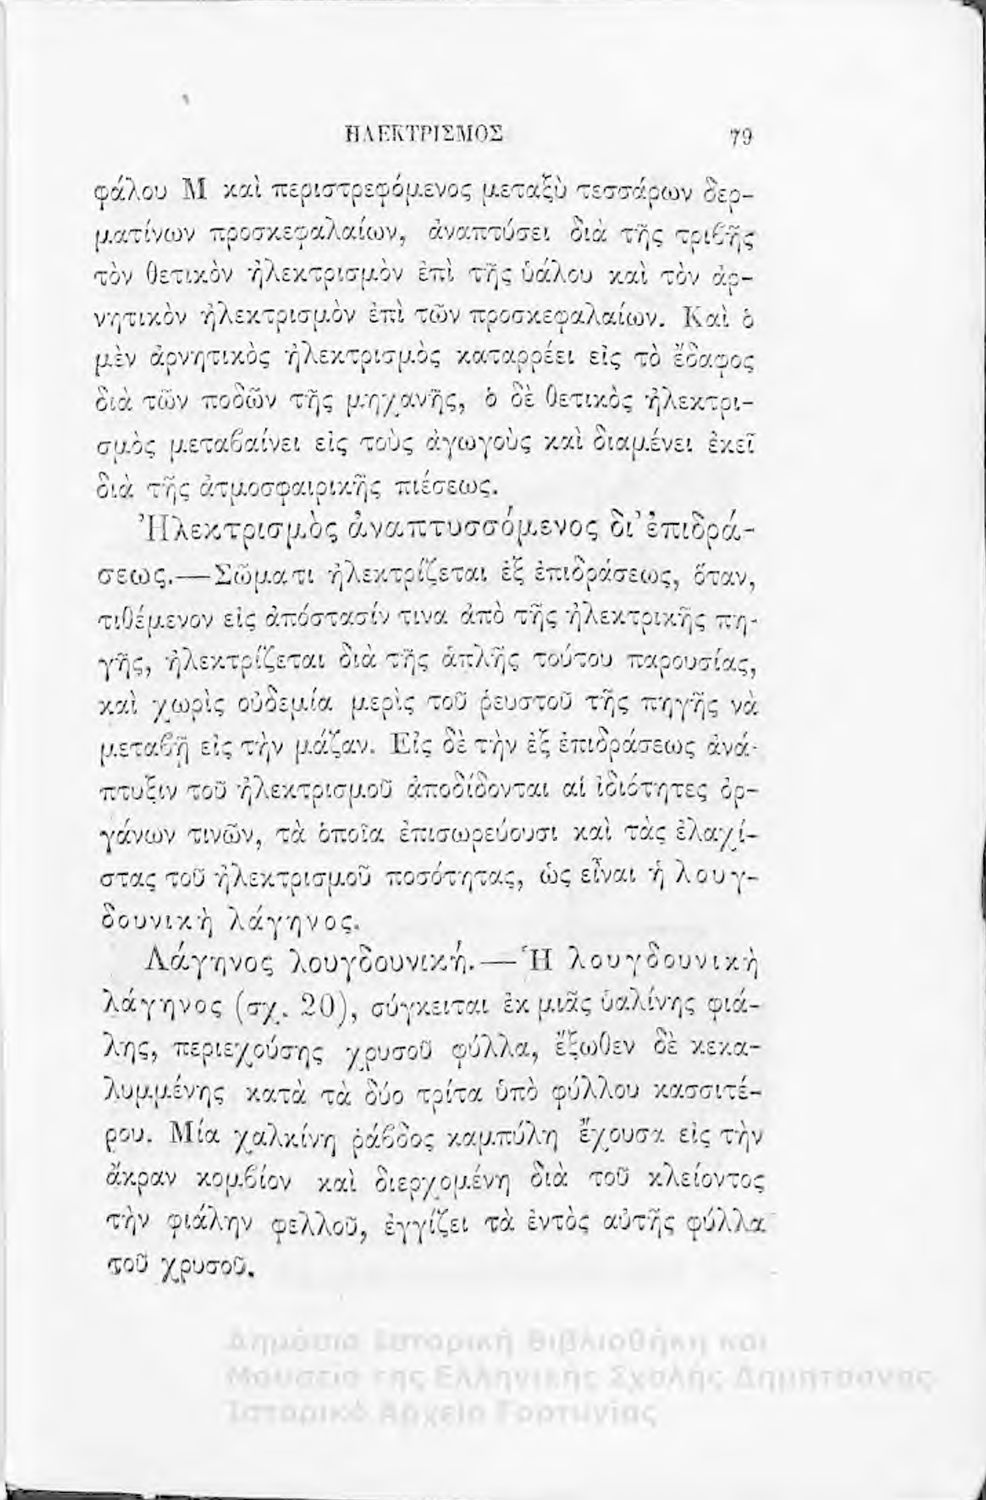 ΗΛΕΚΤΡΙΣΜΟΣ 79
φάλου Μ καὶ περιστρεφόμενος μεταξὺ τεσσάρων δερ-
ματίνων προσκεφαλαίων, ἀναπτύσει διὰ τῆς τριβῆς
τὸν θετικὸν ἠλεκτρισμὸν ἐπὶ τῆς ὑάλου καὶ τὸν ἀρ-
νητικὸν ἠλεκτρισμὸν ἐπὶ τῶν προσκεφαλαίων. Καὶ ὁ
μὲν ἀρνητικὸς ἠλεκτρισμὸς καταρρέει εἰς τὸ ἔδαφος
διὰ τῶν ποδῶν τῆς μηχανῆς, ὁ δὲ θετικὸς ἠλεκτρι-
σμὸς μεταβαίνει εἰς τοὺς ἀγωγοὺς καὶ διαμένει ἐκεῖ
διὰ τῆς ἀτμοσφαιρικῆς πιέσεως.
Ἠλεκτρισμὸς ἀναπτυσσόμενος δι' ἐπιδρά-
σεως.—Σῶμα τι ἠλεκτρίζεται ἐξ ἐπιδράσεως, ὅταν,
τιθέμενον εἰς ἀπόστασίν τινα ἀπὸ τῆς ἠλεκτρικῆς πη-
γῆς, ἠλεκτρίζεται διὰ τῆς ἁπλῆς τούτου παρουσίας,
καὶ χωρὶς οὐδεμία μερὶς τοῦ ῥευστοῦ τῆς πηγῆς νὰ
μεταβῇ εἰς τὴν μάζαν. Εἰς δὲ τὴν ἐξ ἐπιδράσεως ἀνά-
πτυξιν τοῦ ἠλεκτρισμοῦ ἀποδίδονται αἱ ἰδιότητες ὀρ-
γάνων τινῶν, τὰ ὁποῖα ἐπισωρεύουσι καὶ τὰς ἐλαχί-
στας τοῦ ἠλεκτρισμοῦ ποσότητας, ὡς εἶναι ἡ λουγ-
δουνικὴ λάγηνος.
Λάγηνος λουγδουνική.—Ἡ λουγδουνικὴ
λάγηνος (σχ. 20), σύγκειται ἐκ μιᾶς ὑαλίνης φιά-
λης, περιεχούσης χρυσοῦ φύλλα, ἔξωθεν δὲ κεκα-
λυμμένης κατὰ τὰ δύο τρίτα ὑπὸ φύλλου κασσιτέ-
ρου. Μία χαλκίνη ῥάβδος καμπύλη ἔχουσα εἰς τὴν
ἄκραν κομβίον καὶ διερχομένη διὰ τοῦ κλείοντος
τὴν φιάλην φελλοῦ, ἐγγίζει τὰ ἐντὸς αὐτῆς φύλλα
τοῦ χρυσοῦ.
Δημόσια Ιστορική Βιβλιοθήκη και
Μουσείο της Ελληνικής Σχολής Δημητσάνας
Ιστορικό Αρχείο Γορτυνίας